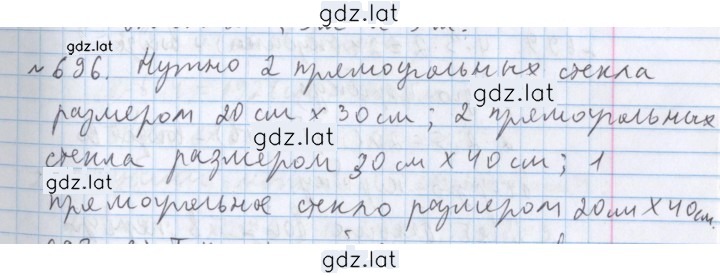 gdz.lat
№ 696. Нужно 2 прямоугольных стекла
gdz.lat
размером 20 см х 30 см; 2 прямоугольных
gdz.lat
gdz.lat
стекла размером 30 см х 40 см; 1
gdz.lat
прямоугольное стекло размером 20 см х 40 см.
gdz.lat